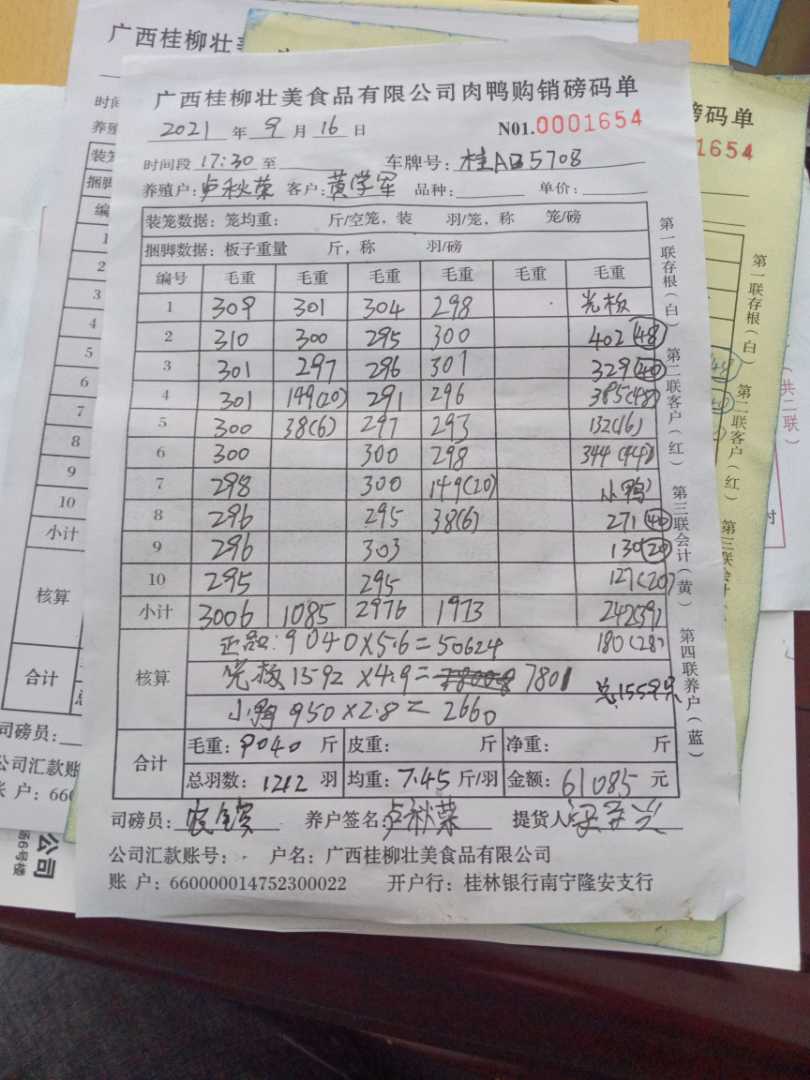 广西桂柳壮美食品有限公司肉鸭购销磅码单
2021 年 9 月 16 日 N01.0001654
时间段 17:30 至 车牌号: 桂A 5708
养殖户: 卢秋荣 客户: 黄学军 品种: 单价:
装笼数据: 笼均重: 斤/空笼, 装 羽/笼, 称 笼/磅
捆脚数据: 板子重量 斤, 称 羽/磅
编号 毛重 毛重 毛重 毛重 毛重 毛重
1 309 301 304 298 光板
2 310 300 295 300 402(48)
3 301 297 296 301 329(40)
4 301 149(20) 291 296 385(48)
5 300 38(6) 297 293 132(16)
6 300 300 298 344(44)
7 298 300 149(20) 小鸭
8 296 295 38(6) 271(40)
9 296 303 130(20)
10 295 295 127(20)
小计 3006 1085 2976 1973 242(39)
核算 正品: 9040×5.6=50624 180(28)
光板 1592×4.9= 7801 总1559只
小鸭 950×2.8= 2660
合计 毛重: 9040 斤 皮重: 斤 净重: 斤
总羽数: 1212 羽 均重: 7.45 斤/羽 金额: 61085 元
司磅员: 养户签名: 卢秋荣 提货人:
公司汇款账号: 户名: 广西桂柳壮美食品有限公司
账 户: 660000014752300022 开户行: 桂林银行南宁隆安支行
第一联存根(白) 第二联客户(红) 第三联会计(黄) 第四联养户(蓝)
广西桂柳壮美
时间
养殖
装笼
捆脚
编
1
2
3
4
5
6
7
8
9
10
小计
核算
合计
司磅员:
公司汇款账
账 户: 660
磅码单
1654
第一联存根(白) 第二联客户(红) 第三联会
(共二联)
公司
6号楼